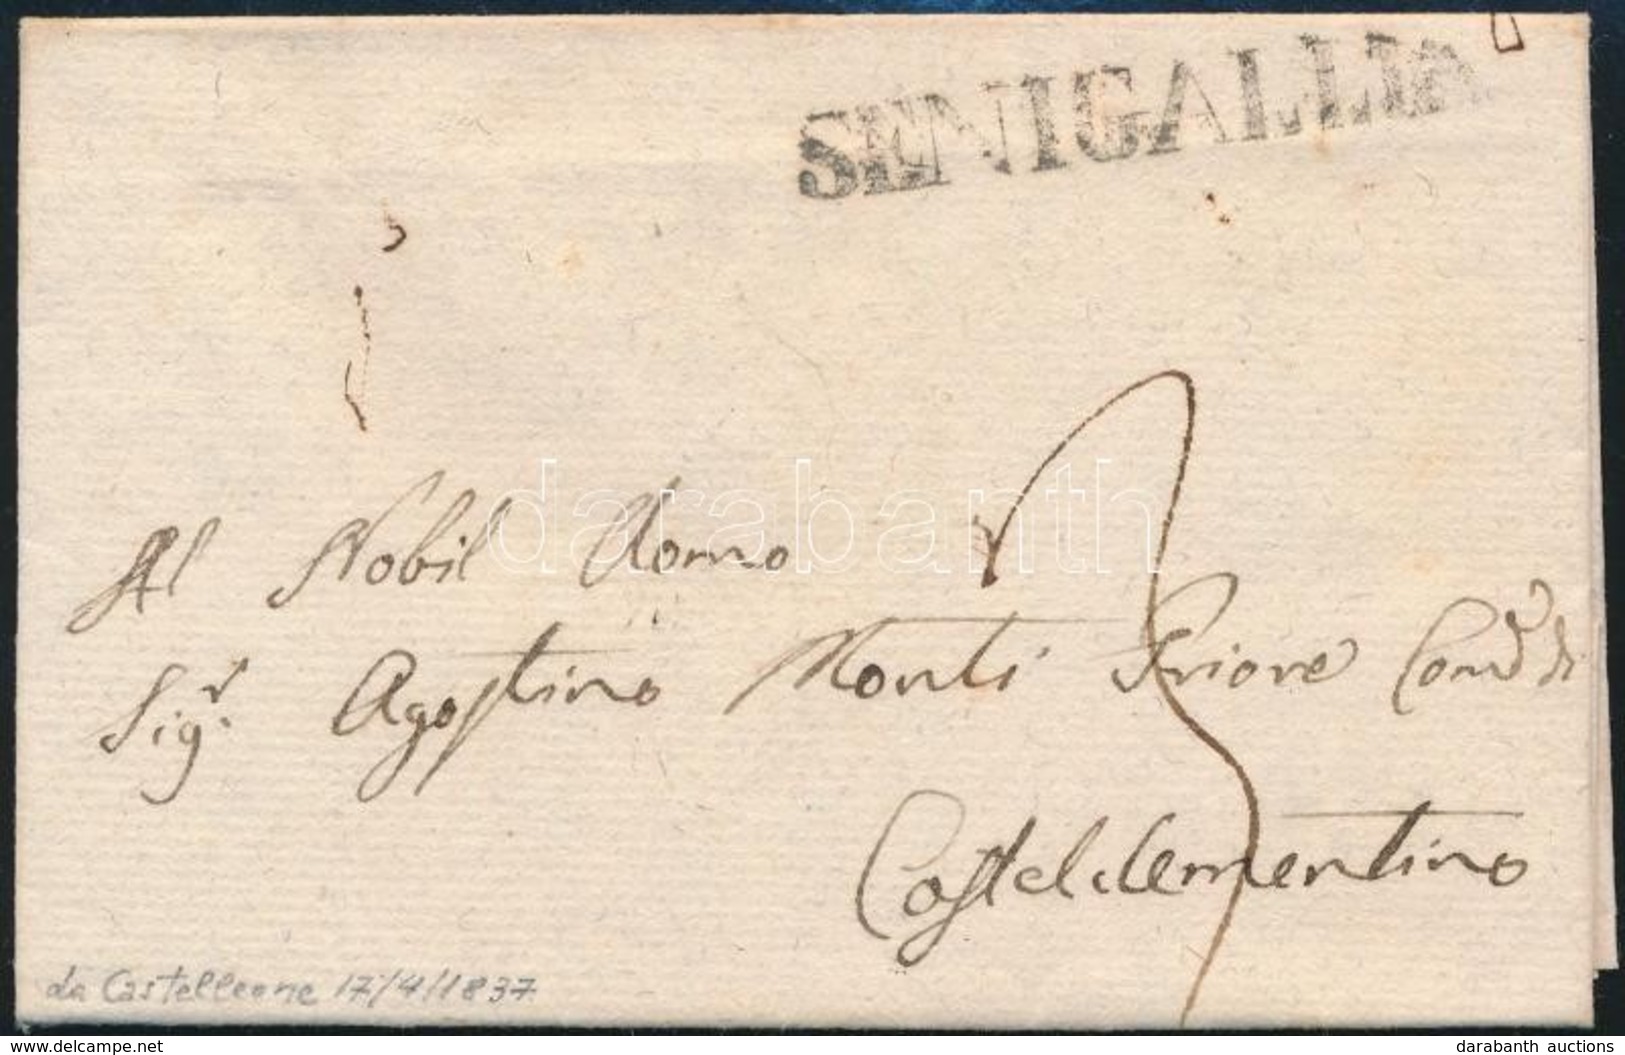 SENIGALLIA
3
Al Nobil Uomo
Sig.r Agostino Monti Priore Com.le di
Casteldementino
da Castelleone 17/4/1837
darabanth
www.delcampe.net
darabanth auctions